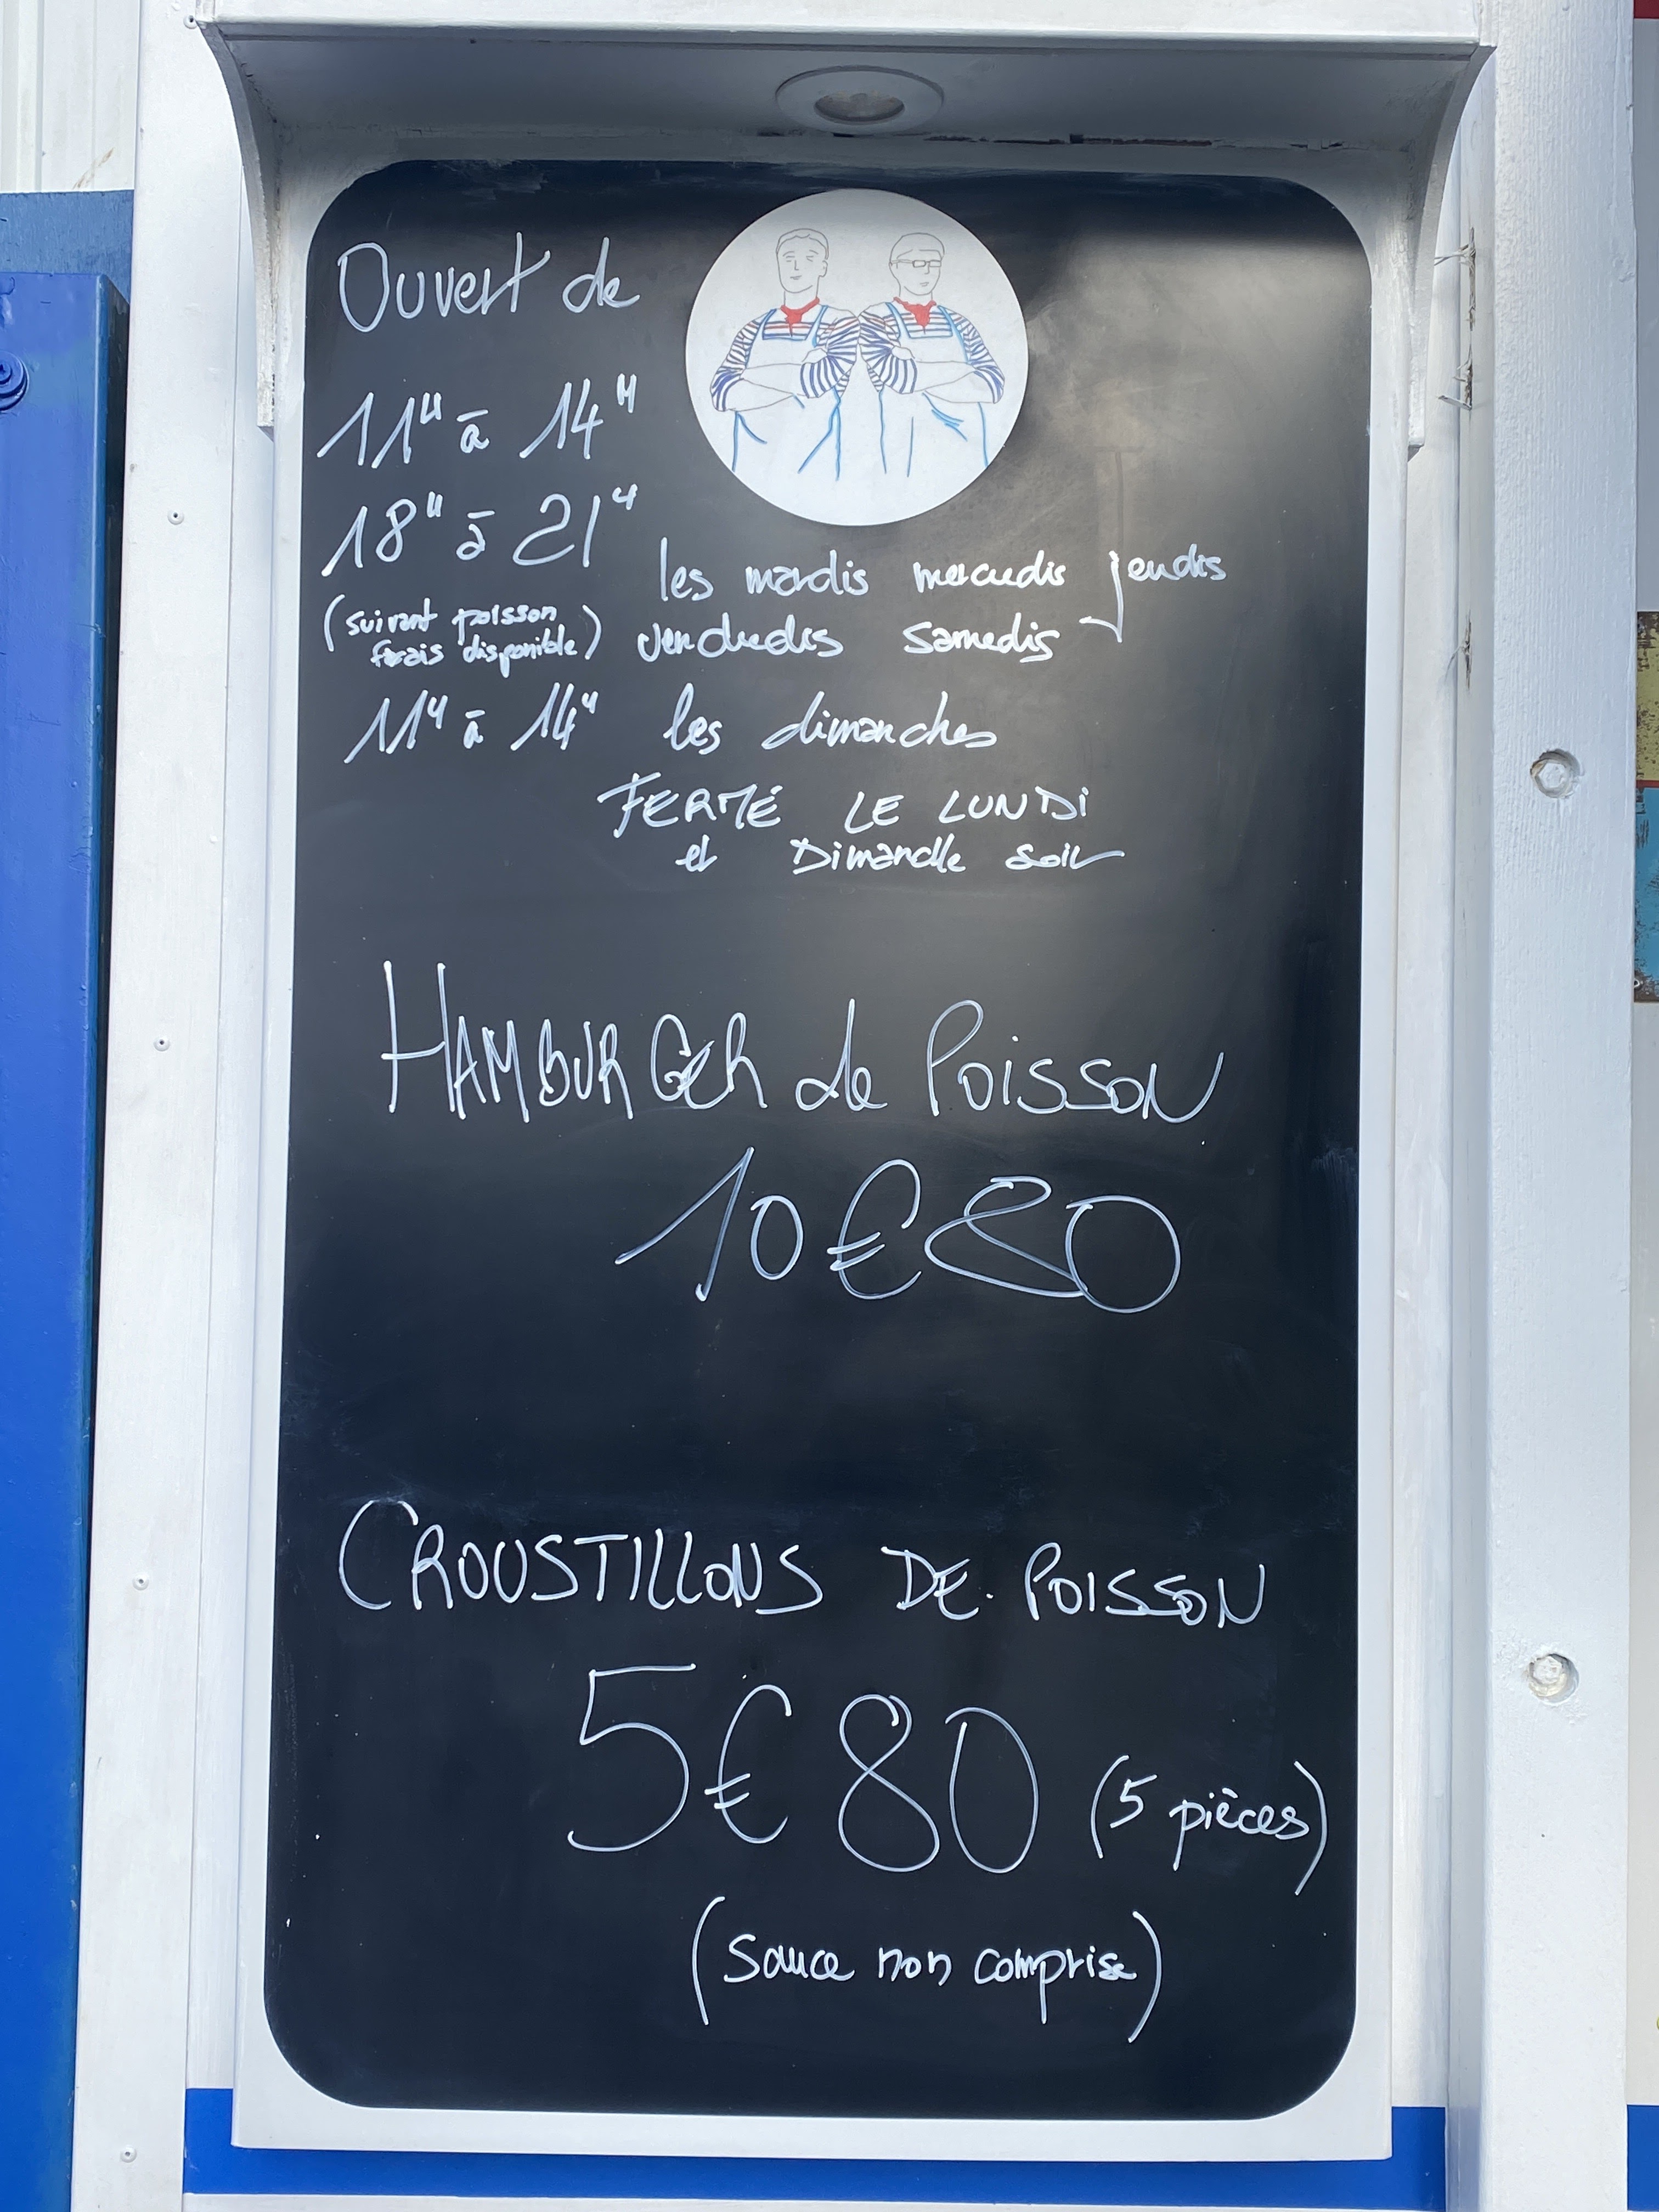 Ouvert de
11H à 14H
18H à 21H
les mardis mercredis jeudis
(suivant poisson
frais disponible)
vendredis samedis
11H à 14H les dimanches
FERMÉ LE LUNDI
et Dimanche soir
HAMBURGER de POISSON
10€80
CROUSTILLONS DE POISSON
5€80 (5 pièces)
(Sauce non comprise)